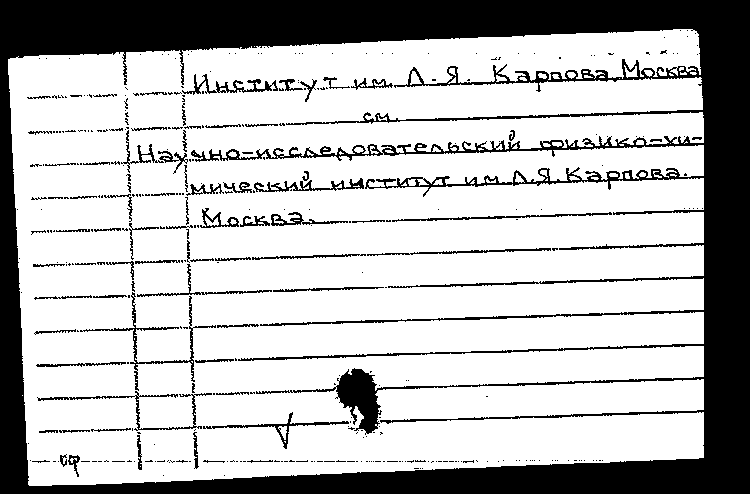 Институт им. Л.Я. Карпова. Москва
см.
Научно-исследовательский физико-хи-
мический институт им. Л.Я. Карпова.
Москва.